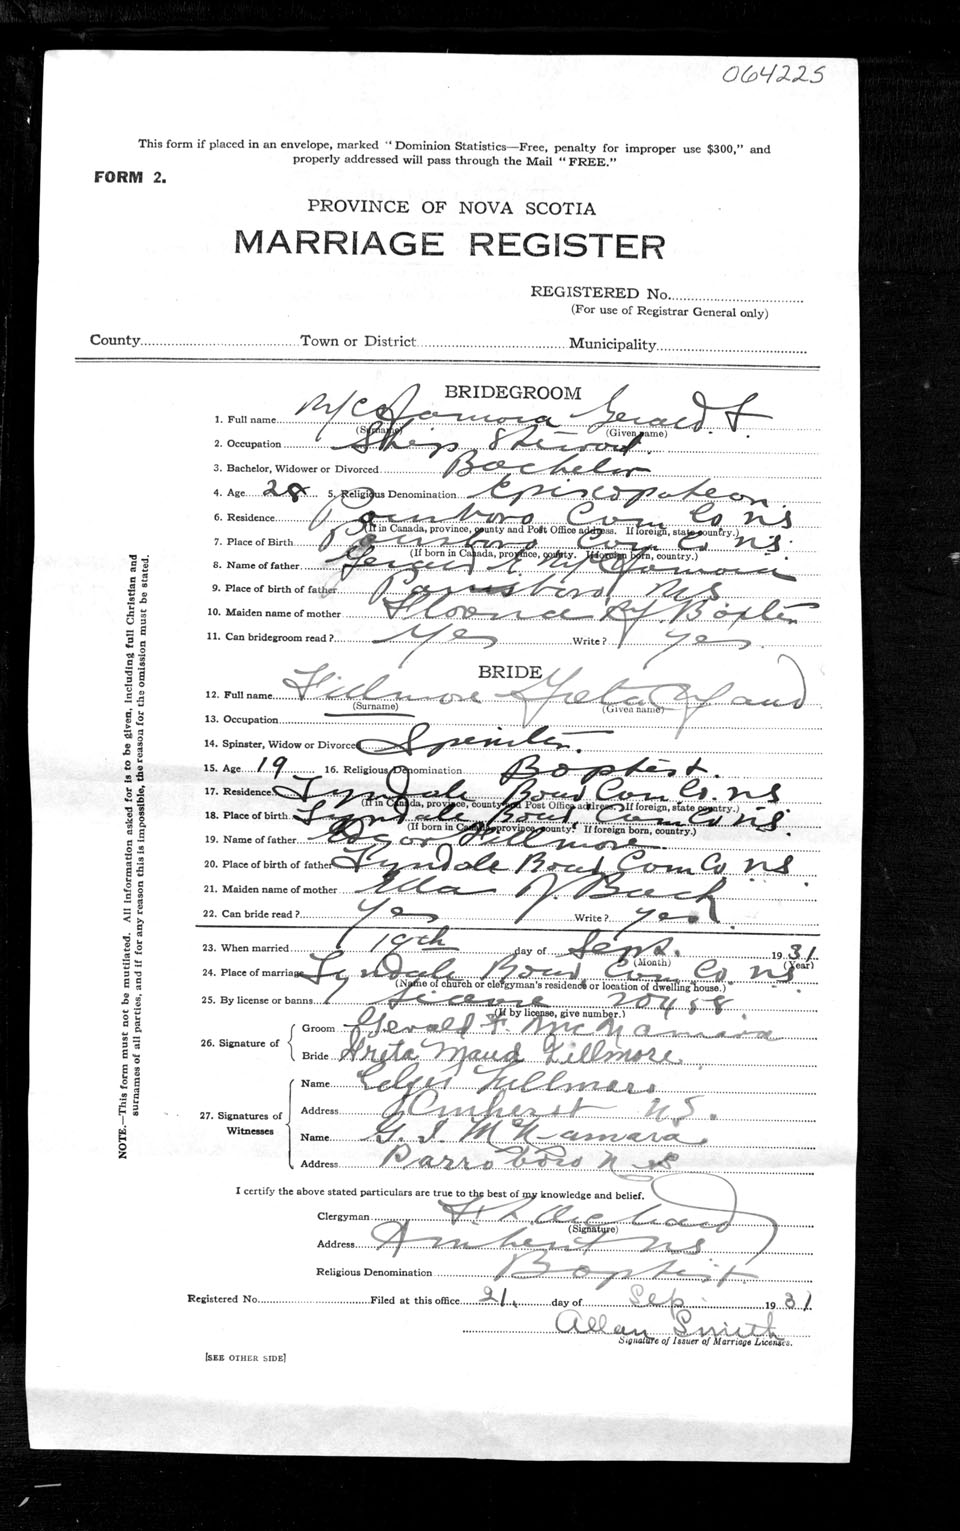 064225
This form if placed in an envelope, marked "Dominion Statistics—Free, penalty for improper use $300," and
properly addressed will pass through the Mail "FREE."
FORM 2.
PROVINCE OF NOVA SCOTIA
MARRIAGE REGISTER
REGISTERED No.
(For use of Registrar General only)
County Town or District Municipality
BRIDEGROOM
1. Full name McNamara Gerald F.
(Surname) (Given name)
2. Occupation Ship Steward
3. Bachelor, Widower or Divorced Bachelor
4. Age 28 5. Religious Denomination Episcopalean
6. Residence Parrsboro Cum Co NS
(If in Canada, province, county and Post Office address. If foreign, state country.)
7. Place of Birth Parrsboro Cum Co NS.
(If born in Canada, province, county. If foreign born, country.)
8. Name of father McNamara
9. Place of birth of father Parrsboro NS
10. Maiden name of mother Florence Baxter
11. Can bridegroom read? Yes Write? Yes
BRIDE
12. Full name Fillmore Greta Maud
(Surname) (Given name)
13. Occupation
14. Spinster, Widow or Divorced Spinster.
15. Age 19 16. Religious Denomination Baptist.
17. Residence Tyndale Road Cum Co. NS
(If in Canada, province, county and Post Office address. If foreign, state country.)
18. Place of birth Tyndale Road, Cum Co NS.
(If born in Canada, province, county. If foreign born, country.)
19. Name of father Edgar Fillmore
20. Place of birth of father Tyndale Road Cum Co NS
21. Maiden name of mother Ella
22. Can bride read? Yes Write? Yes
23. When married 19th day of Sept. 1931
(Month) (Year)
24. Place of marriage Tyndale Road Cum Co NS
(Name of church or clergyman's residence or location of dwelling house.)
25. By license or banns License 20458
(If by license, give number.)
26. Signature of
Groom Gerald F. McNamara
Bride Greta Maud Fillmore.
27. Signatures of Witnesses
Name Fillmore
Address Amherst NS.
Name G. I. McNamara
Address Parrsboro N S
I certify the above stated particulars are true to the best of my knowledge and belief.
Clergyman
(Signature)
Address Amherst NS
Religious Denomination Baptist
Registered No. Filed at this office 21 day of Sep. 1931
Allan Smith
Signature of Issuer of Marriage Licenses.
[SEE OTHER SIDE]
NOTE.—This form must not be mutilated. All information asked for is to be given, including full Christian and
surnames of all parties, and if for any reason this is impossible, the reason for the omission must be stated.